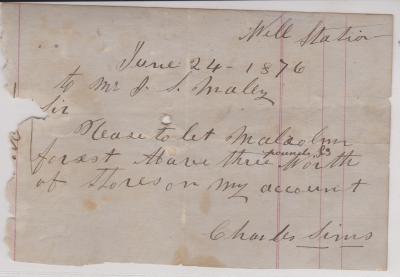 Well Station
June 24 - 1876
to Mr J. S. Maley
Sir
Please to let Malcolm
forest Have three pounds £3 Worth
of Stores on my account
Charles Sims